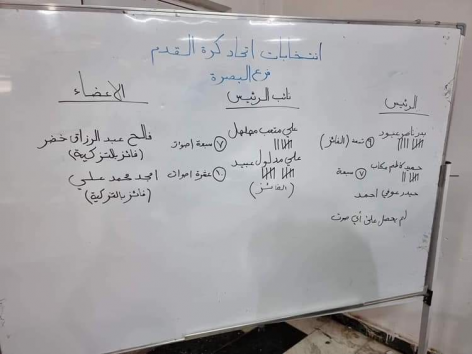 انتخابات اتحاد كرة القدم
فرع البصرة
الرئيس
بدر ناصر عبود
٩ تسعة (الفائز)
حميد كاظم
٧ سبعة
حيدر عوفي احمد
لم يحصل على أي صوت
نائب الرئيس
علي متعب مهلهل
٧ سبعة اصوات
علي مدلول عبيد
١٠ عشرة اصوات
(الفائز)
الاعضاء
فالح عبد الرزاق خضر
(فائز بالتزكية)
امجد محمد علي
(فائز بالتزكية)